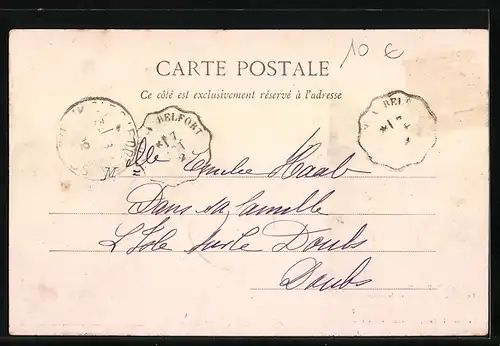 10 €
CARTE POSTALE
Ce côté est exclusivement réservé à l'adresse
BELFORT
BELF
M
elle Emilie Haab
Dans sa famille
L'Isle sur le Doubs
Doubs